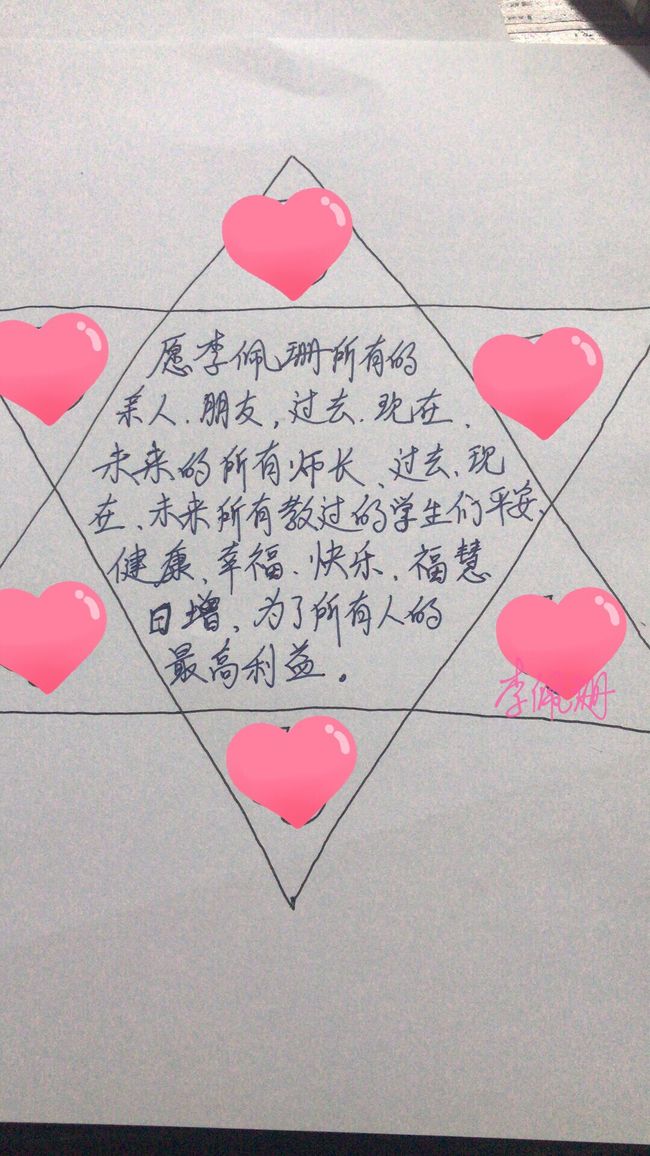 愿李佩珊所有的
亲人、朋友，过去、现在、
未来的所有师长、过去、现
在、未来所有教过的学生们平安、
健康、幸福、快乐，福慧
日增，为了所有人的
最高利益。
李佩珊